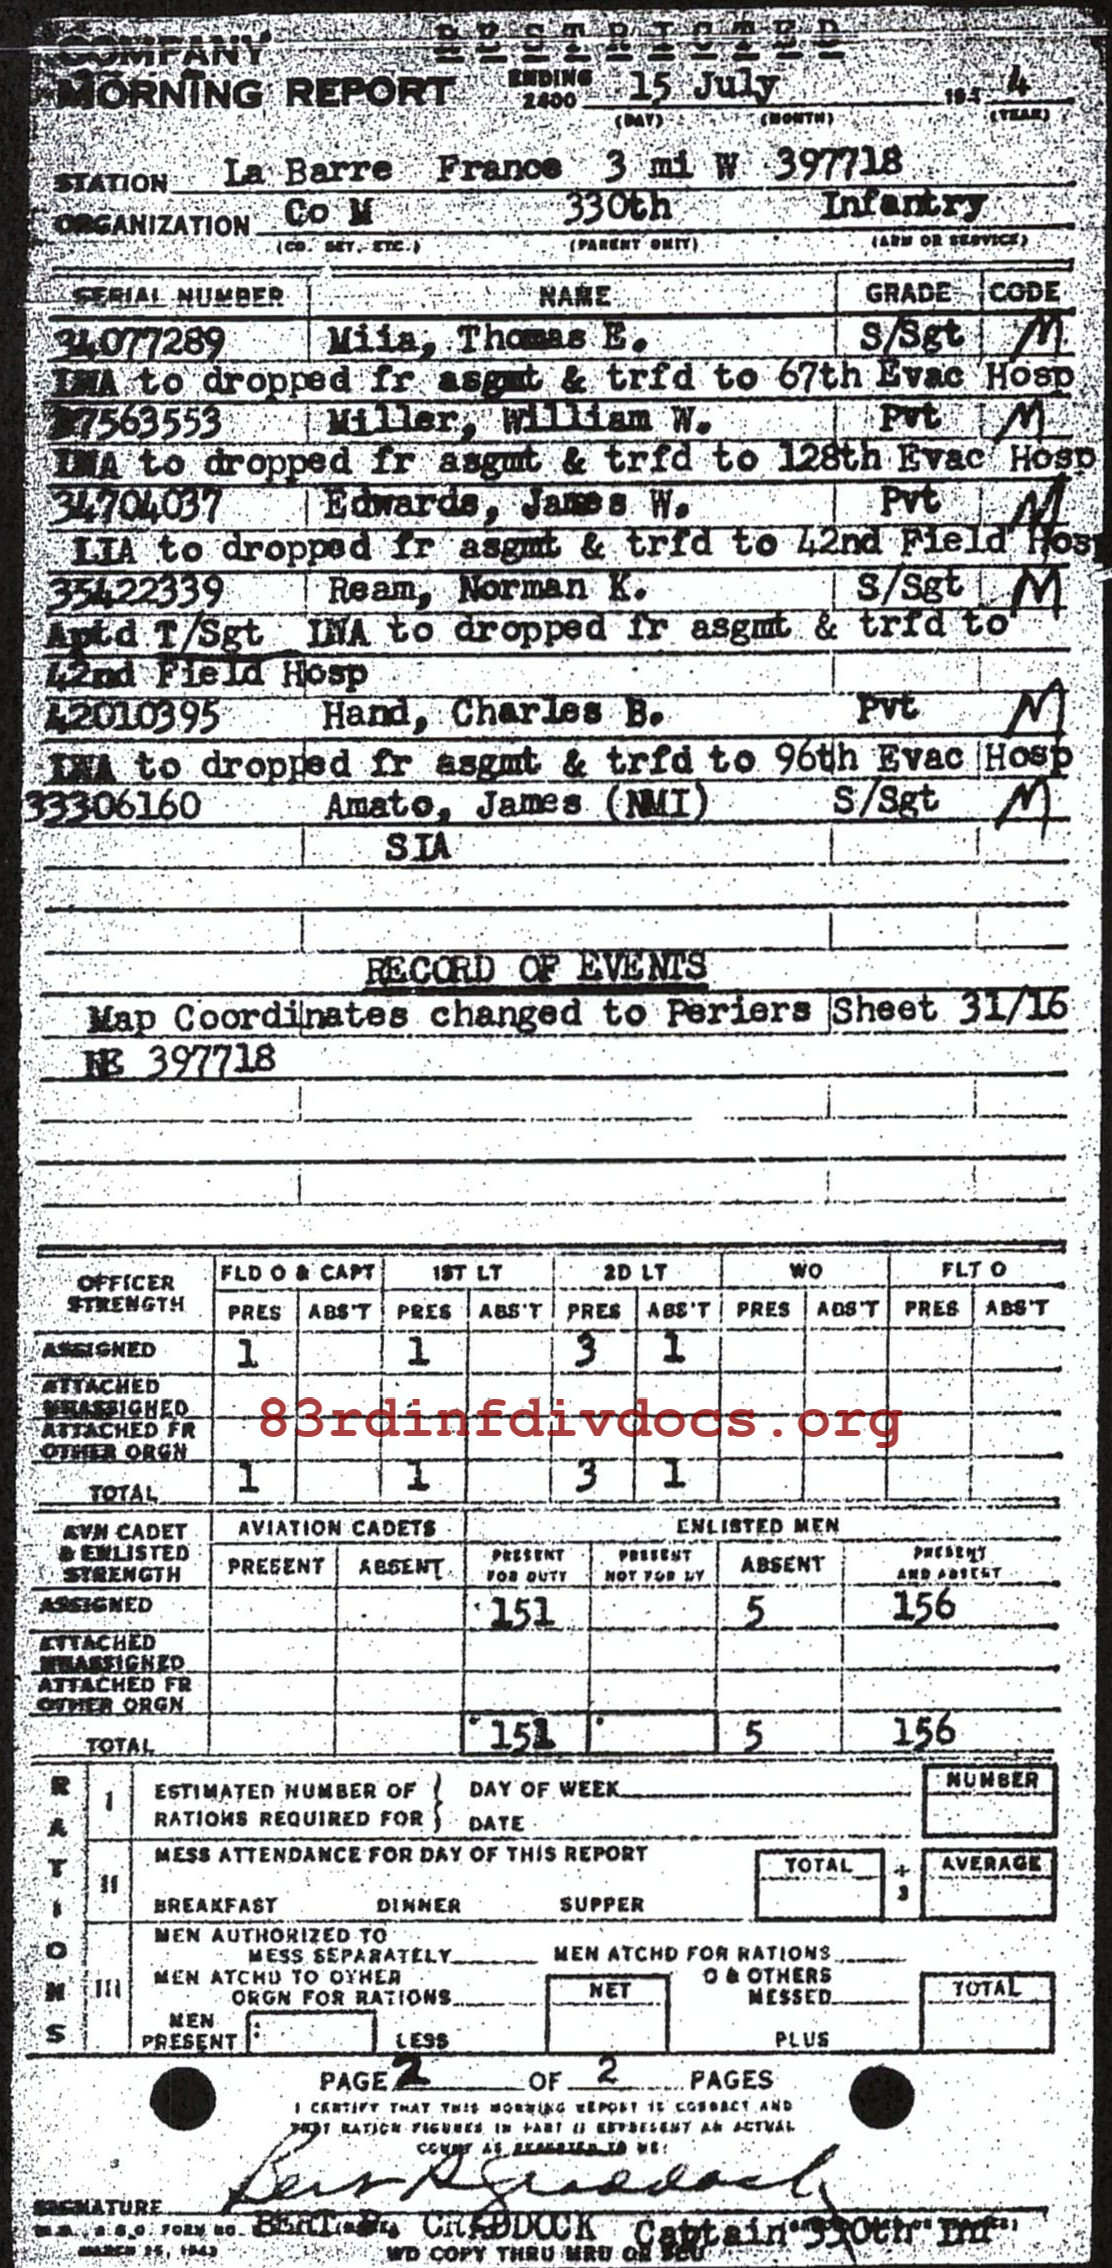 RESTRICTED
COMPANY
MORNING REPORT ENDING 2400 15 July 194 4
(DAY) (MONTH) (YEAR)
STATION La Barre France 3 mi W 397718
ORGANIZATION Co M 330th Infantry
(CO. DET. ETC.) (PARENT UNIT) (ARM OR SERVICE)
SERIAL NUMBER NAME GRADE CODE
34077289 Miia, Thomas E. S/Sgt M
LWA to dropped fr asgmt & trfd to 67th Evac Hosp
7563553 Miller, William W. Pvt M
LWA to dropped fr asgmt & trfd to 128th Evac Hosp
34704037 Edwards, James W. Pvt M
LIA to dropped fr asgmt & trfd to 42nd Field Hos
35422339 Ream, Norman K. S/Sgt M
Aptd T/Sgt LWA to dropped fr asgmt & trfd to
42nd Field Hosp
42010395 Hand, Charles B. Pvt M
LWA to dropped fr asgmt & trfd to 96th Evac Hosp
33306160 Amato, James (NMI) S/Sgt M
SIA
RECORD OF EVENTS
Map Coordinates changed to Periers Sheet 31/16
NE 397718
OFFICER STRENGTH FLD O & CAPT 1ST LT 2D LT WO FLT O
PRES ABS'T PRES ABS'T PRES ABS'T PRES ABS'T PRES ABS'T
ASSIGNED 1 1 3 1
ATTACHED UNASSIGNED
83rdinfdivdocs.org
ATTACHED FR OTHER ORGN
TOTAL 1 1 3 1
AVN CADET & ENLISTED STRENGTH AVIATION CADETS ENLISTED MEN
PRESENT ABSENT PRESENT FOR DUTY PRESENT NOT FOR DY ABSENT PRESENT AND ABSENT
ASSIGNED 151 5 156
ATTACHED UNASSIGNED
ATTACHED FR OTHER ORGN
TOTAL 151 5 156
RATIONS
I ESTIMATED NUMBER OF RATIONS REQUIRED FOR DAY OF WEEK DATE NUMBER
II MESS ATTENDANCE FOR DAY OF THIS REPORT TOTAL ÷ 3 AVERAGE
BREAKFAST DINNER SUPPER
III MEN AUTHORIZED TO MESS SEPARATELY MEN ATCHD FOR RATIONS
MEN ATCHD TO OTHER ORGN FOR RATIONS NET O & OTHERS MESSED TOTAL
MEN PRESENT LESS PLUS
PAGE 2 OF 2 PAGES
I CERTIFY THAT THIS MORNING REPORT IS CORRECT AND
THAT RATION FIGURES IN PART II REPRESENT AN ACTUAL
COUNT AS REPORTED TO ME:
SIGNATURE
W.D., A.G.O. FORM NO. BERT CRADDOCK Captain 330th Inf
MARCH 15, 1943
WD COPY THRU MRU OR SCU